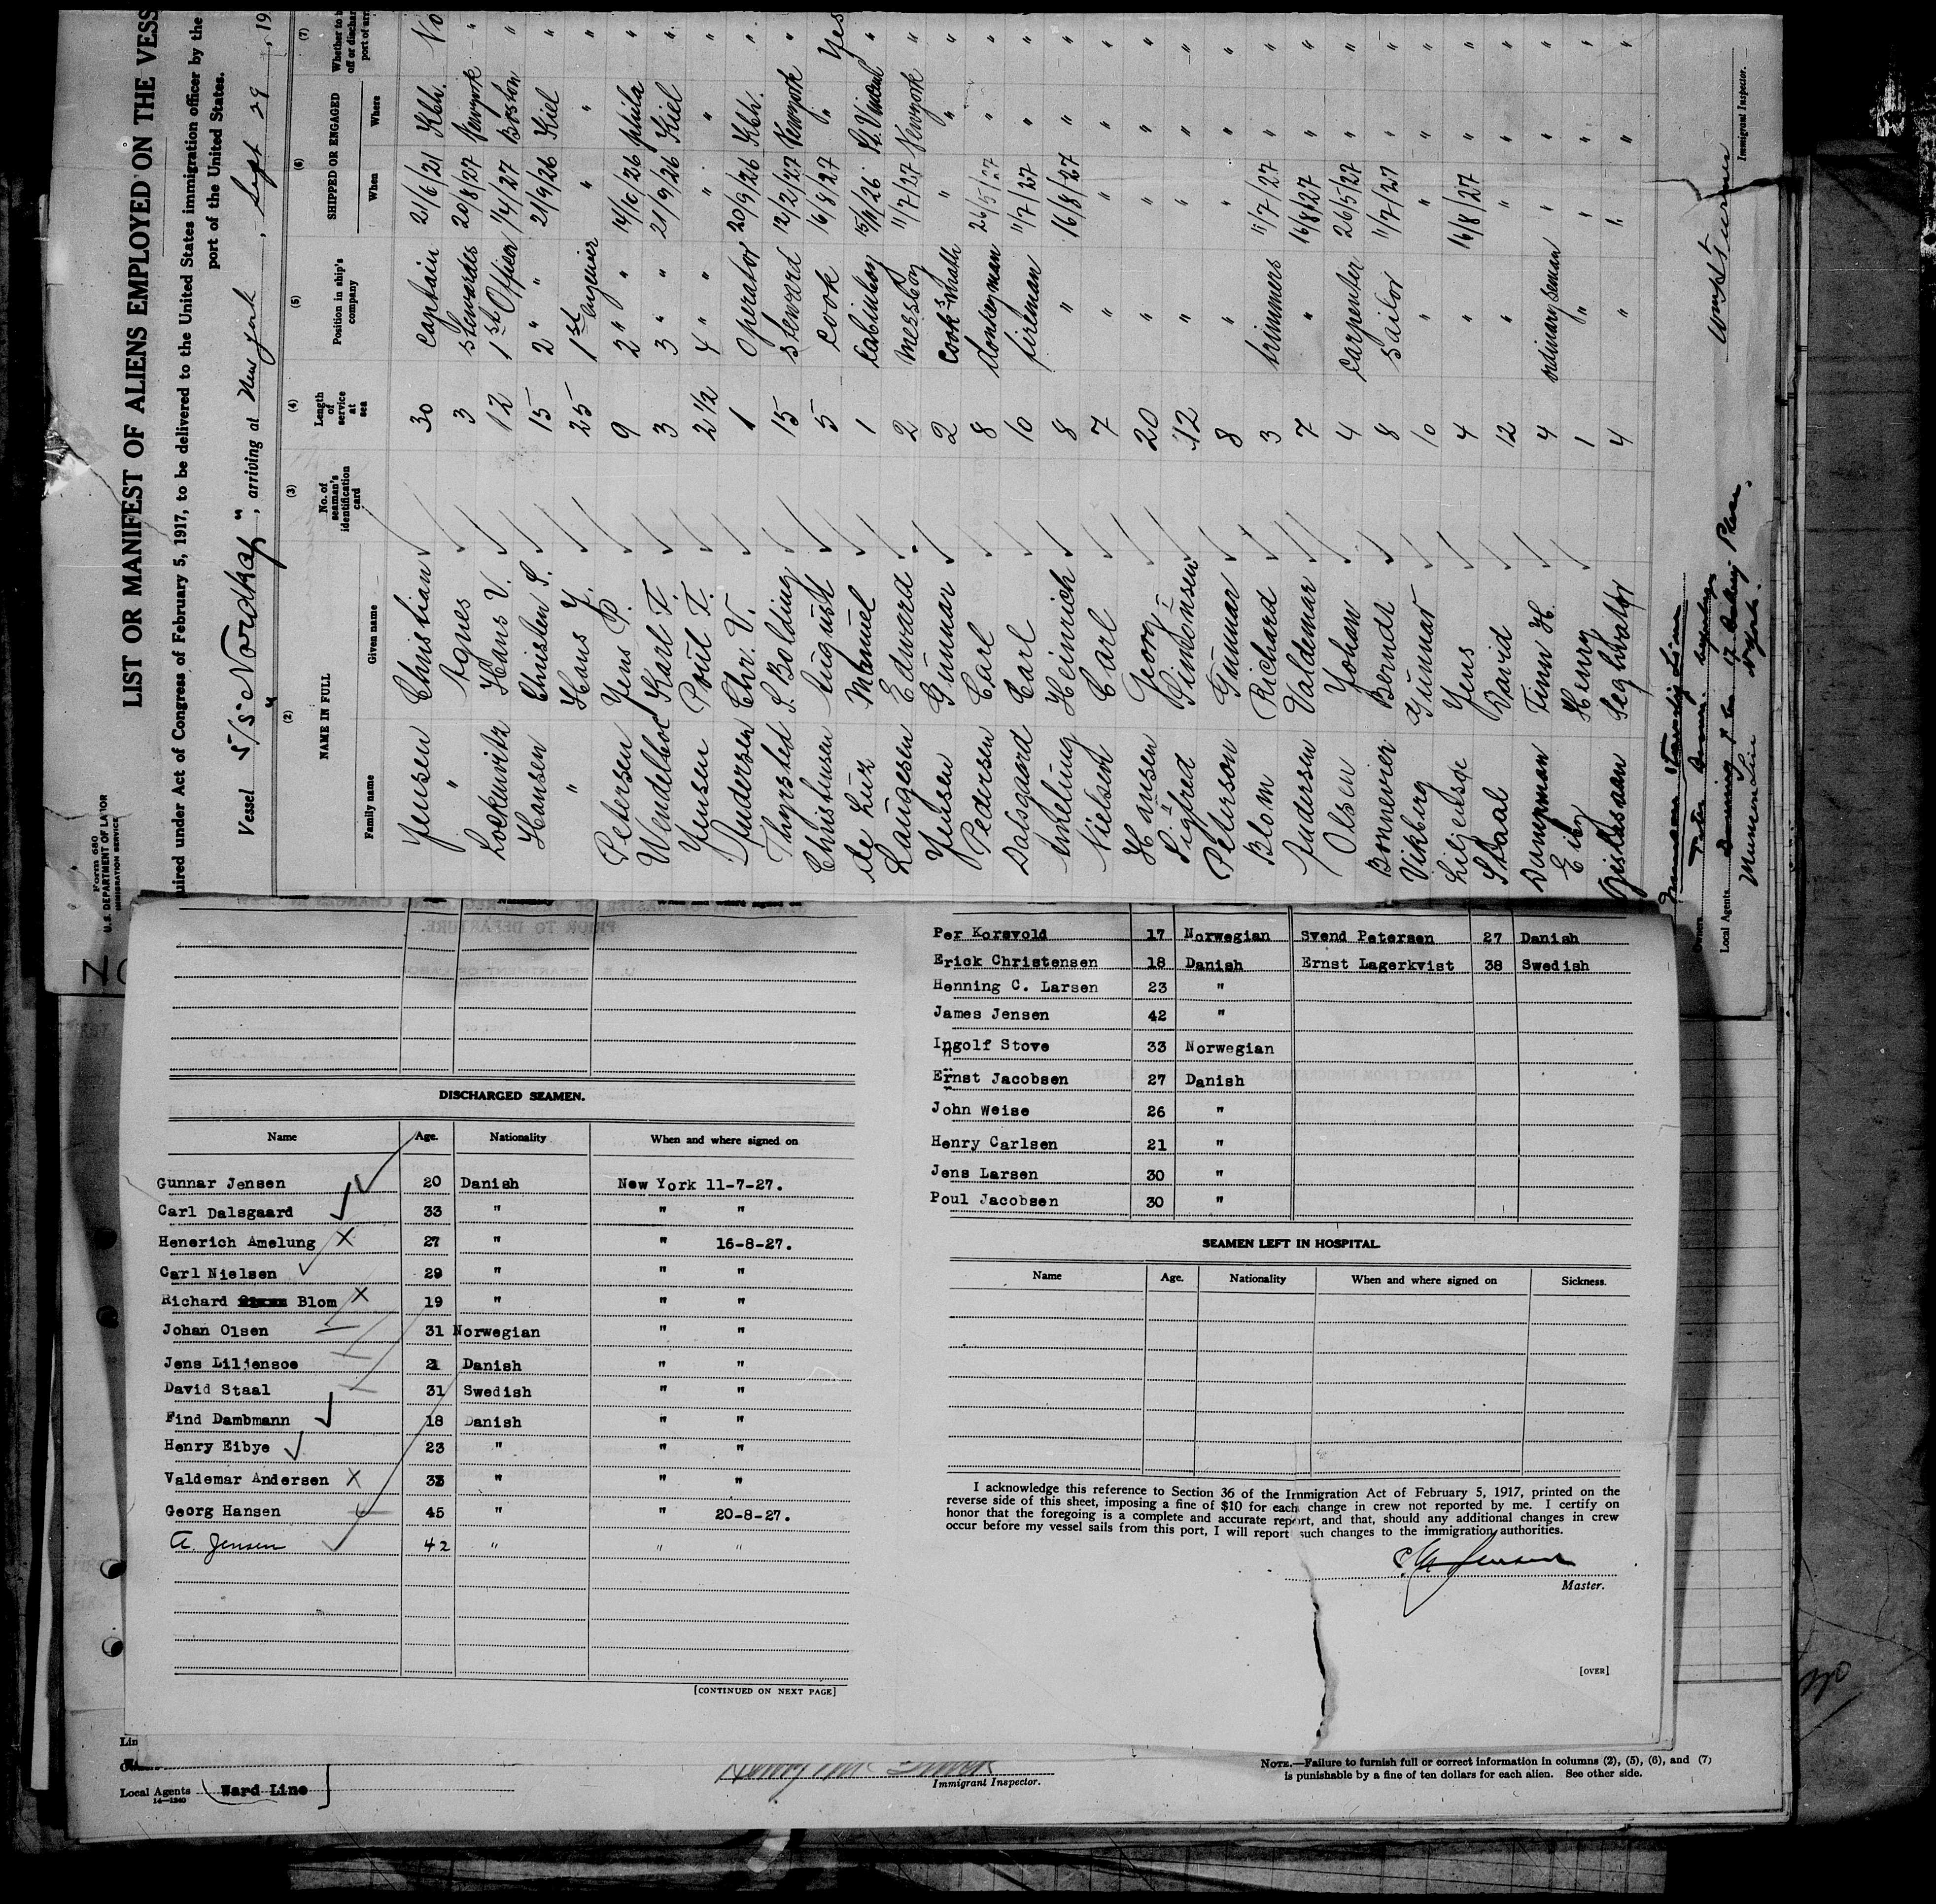 Form 680
U.S. DEPARTMENT OF LABOR
IMMIGRATION SERVICE
LIST OR MANIFEST OF ALIENS EMPLOYED ON THE VESS
uired under Act of Congress of February 5, 1917, to be delivered to the United States immigration officer by the
port of the United States.
Vessel S/S "Nordhav", arriving at New York, Sept 29, 19
(2) (3) (4) (5) (6) (7)
NAME IN FULL
Family name Given name
No. of seaman's identification card
Length of service at sea
Position in ship's company
SHIPPED OR ENGAGED
When Where
Jensen Christian 30 Captain 21/6/21 Kbh. No
" Agnes 3 Stewardes 20/8/27 Newyork "
Hans V. 12 1st Officer 1/4/27 Boston "
Hansen Christen S. 15 2 " 21/9/26 Kiel "
" Hans J. 25 1st " " "
Petersen Jens P. 9 2 " 14/6/26 phila "
Karl F. 3 3 " 21/9/26 Kiel "
Jensen Poul F. 2½ 4 " " " "
Andersen Chr. V. 1 Operator 20/9/26 Kbh. "
Thyrsted S. Bolding 15 Steward 12/2/27 Newyork "
Christensen August 5 Cook 16/8/27 " Yes
de Luz Manuel 1 St. Vincent "
Laugesen Edward 2 messboy 11/7/27 Newyork "
Jensen Gunnar 2 cook's math " " "
Pedersen Carl 8 donkeyman 26/5/27 " "
Dalsgaard Carl 10 fireman 11/7/27 " "
Amelung Heinrich 8 " 16/8/27 " "
Nielsen Carl 7 " " " "
Hansen Georg 20 " " " "
Sigfred 12 " " " "
Peterson Gunnar 8 " " " "
Blom Richard 3 trimmers 11/7/27 " "
Andersen Valdemar 7 " 16/8/27 " "
Olsen Johan 4 carpenter 26/5/27 " "
Berndt 8 Sailor 11/7/27 " "
Vikberg Gunnar 10 " " " "
Jens 4 " 16/8/27 " "
Staal David 12 " " " "
Finn H. 4 ordinary seman " " "
Henry 1 " " " "
4 " " " "
Local Agents
Munson Line
Immigrant Inspector.
DISCHARGED SEAMEN.
Name Age. Nationality When and where signed on
Gunnar Jensen 20 Danish New York 11-7-27.
Carl Dalsgaard 33 " " "
Henerich Amelung 27 " " 16-8-27.
Carl Nielsen 29 " " "
Richard Blom 19 " " "
Johan Olsen 31 Norwegian " "
Jens Liliensoe Danish " "
David Staal 31 Swedish " "
Find Dambmann 18 Danish " "
Henry Eibye 23 " " "
Valdemar Andersen " " "
Georg Hansen 45 " " 20-8-27.
A. Jensen 42 " " "
[CONTINUED ON NEXT PAGE]
Per Korsvold 17 Norwegian Svend Petersen 27 Danish
Erick Christensen 18 Danish Ernst Lagerkvist 38 Swedish
Henning C. Larsen 23 "
James Jensen 42 "
Ingolf Stove 33 Norwegian
Ernst Jacobsen 27 Danish
John Weise 26 "
Henry Carlsen 21 "
Jens Larsen 30 "
Poul Jacobsen 30 "
SEAMEN LEFT IN HOSPITAL
Name Age. Nationality When and where signed on Sickness.
I acknowledge this reference to Section 36 of the Immigration Act of February 5, 1917, printed on the
reverse side of this sheet, imposing a fine of $10 for each change in crew not reported by me. I certify on
honor that the foregoing is a complete and accurate report, and that, should any additional changes in crew
occur before my vessel sails from this port, I will report such changes to the immigration authorities.
Jensen
Master.
[OVER]
Local Agents Ward Line
14—1240
Immigrant Inspector.
NOTE.—Failure to furnish full or correct information in columns (2), (5), (6), and (7)
is punishable by a fine of ten dollars for each alien. See other side.